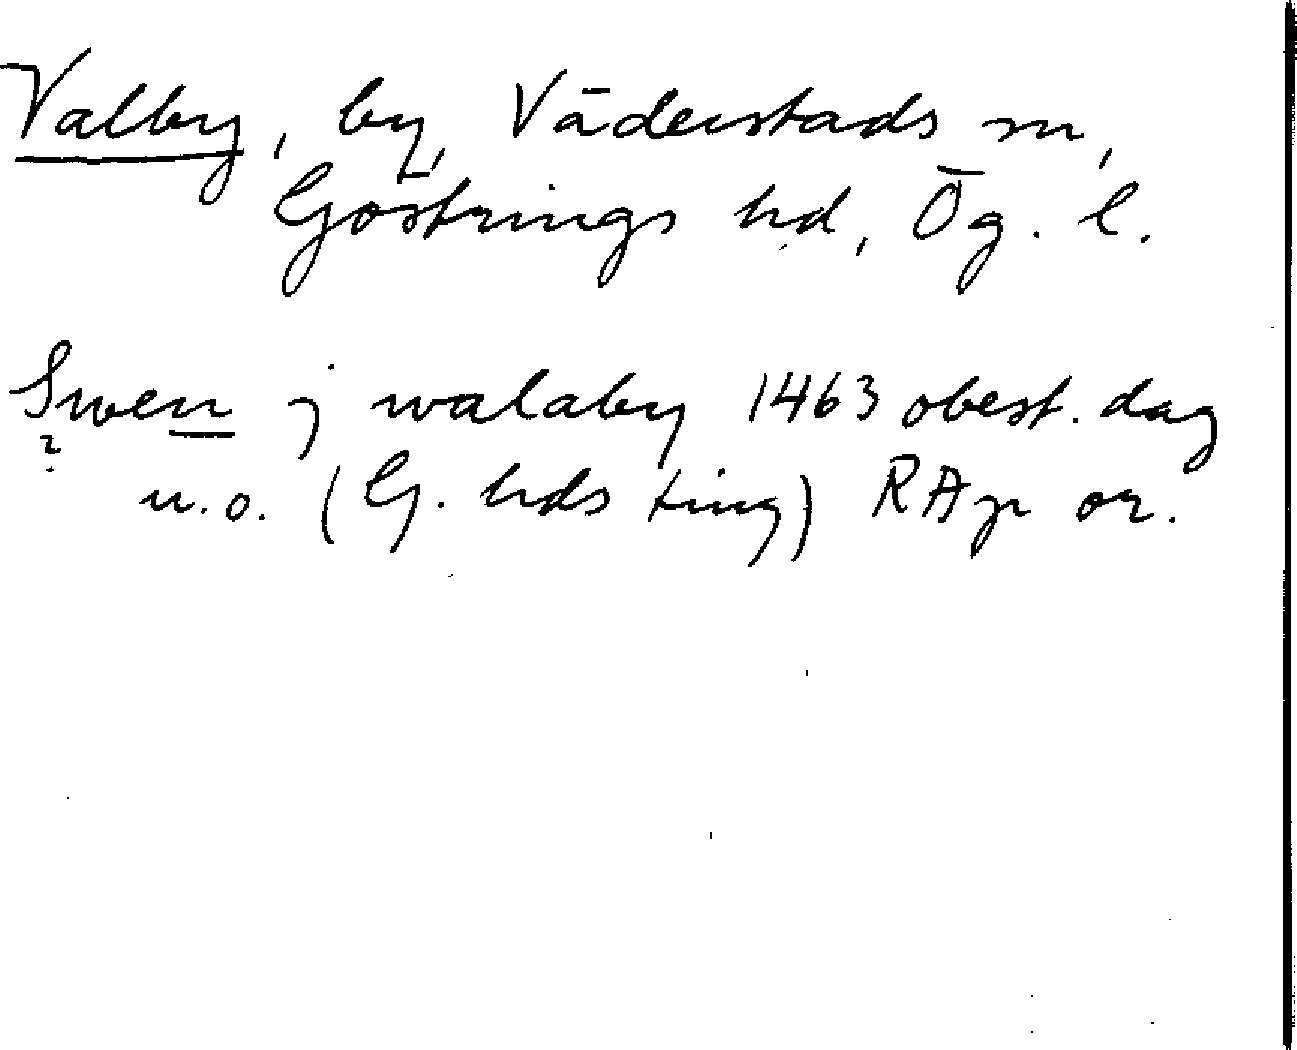 Valby, by, Väderstads sn,
Göstrings hd, Ög. l.
Swen j walaby 1463 obest. dag
?
u.o. (G. hds ting) RAp or.